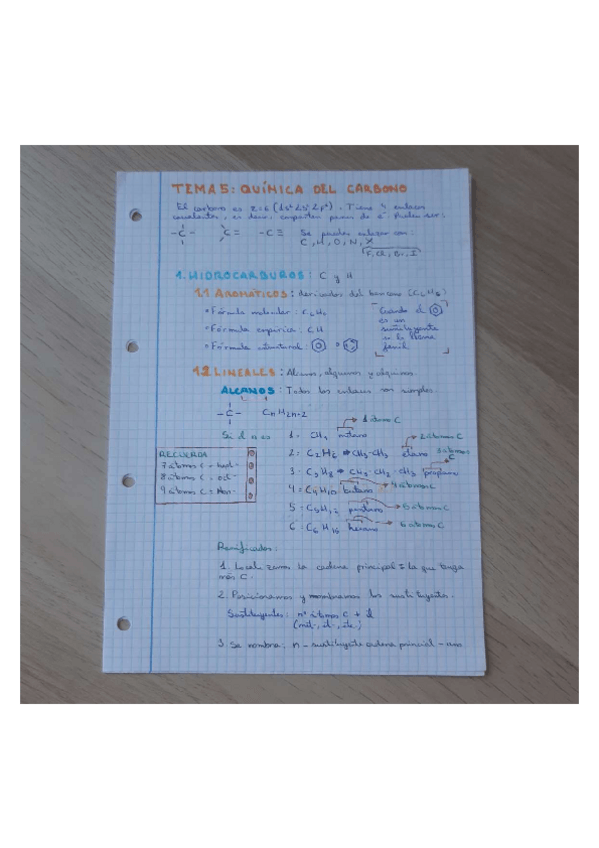 TEMA 5: QUÍMICA DEL CARBONO
El carbono es z=6 (1s² 2s² 2p²). Tiene 4 enlaces
covalentes, es decir, comparten pares de e⁻. Pueden ser:
-C- >C= -C≡ Se pueden enlazar con:
C, H, O, N, X
F, Cl, Br, I
1. HIDROCARBUROS: C y H
1.1 AROMÁTICOS: derivados del benceno (C₆H₆)
• Fórmula molecular: C₆H₆
• Fórmula empírica: CH
• Fórmula estructural: o
Cuando el
es un
sustituyente
se le llama
fenil
1.2 LINEALES: Alcanos, alquenos y alquinos.
ALCANOS: Todos los enlaces son simples.
-C- CnH2n-2
Si el n es 1 = CH₄ metano → 1 átomo C
2 = C₂H₂ → CH₃-CH₃ etano → 2 átomos C
3 = C₃H₈ → CH₃-CH₂-CH₃ propano → 3 átomos C
4 = C₄H₁₀ butano → 4 átomos C
5 = C₅H₁₂ pentano → 5 átomos C
6 = C₆H₁₆ hexano → 6 átomos C
RECUERDA
7 átomos C = hept-
8 átomos C = oct-
9 átomos C = Non-
Ramificados:
1. Localizamos la cadena principal = la que tenga
más C.
2. Posicionamos y nombramos los sustituyentes.
Sustituyentes: nº átomos C + il
(metil-, etil-, etc.)
3. Se nombra: n - sustituyente cadena principal - ano